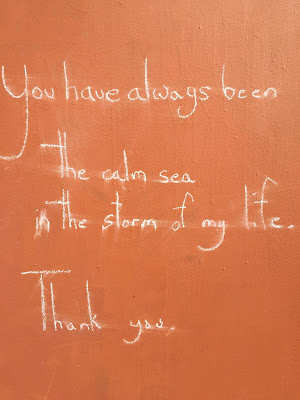 You have always been
the calm sea
in the storm of my life.
Thank you.